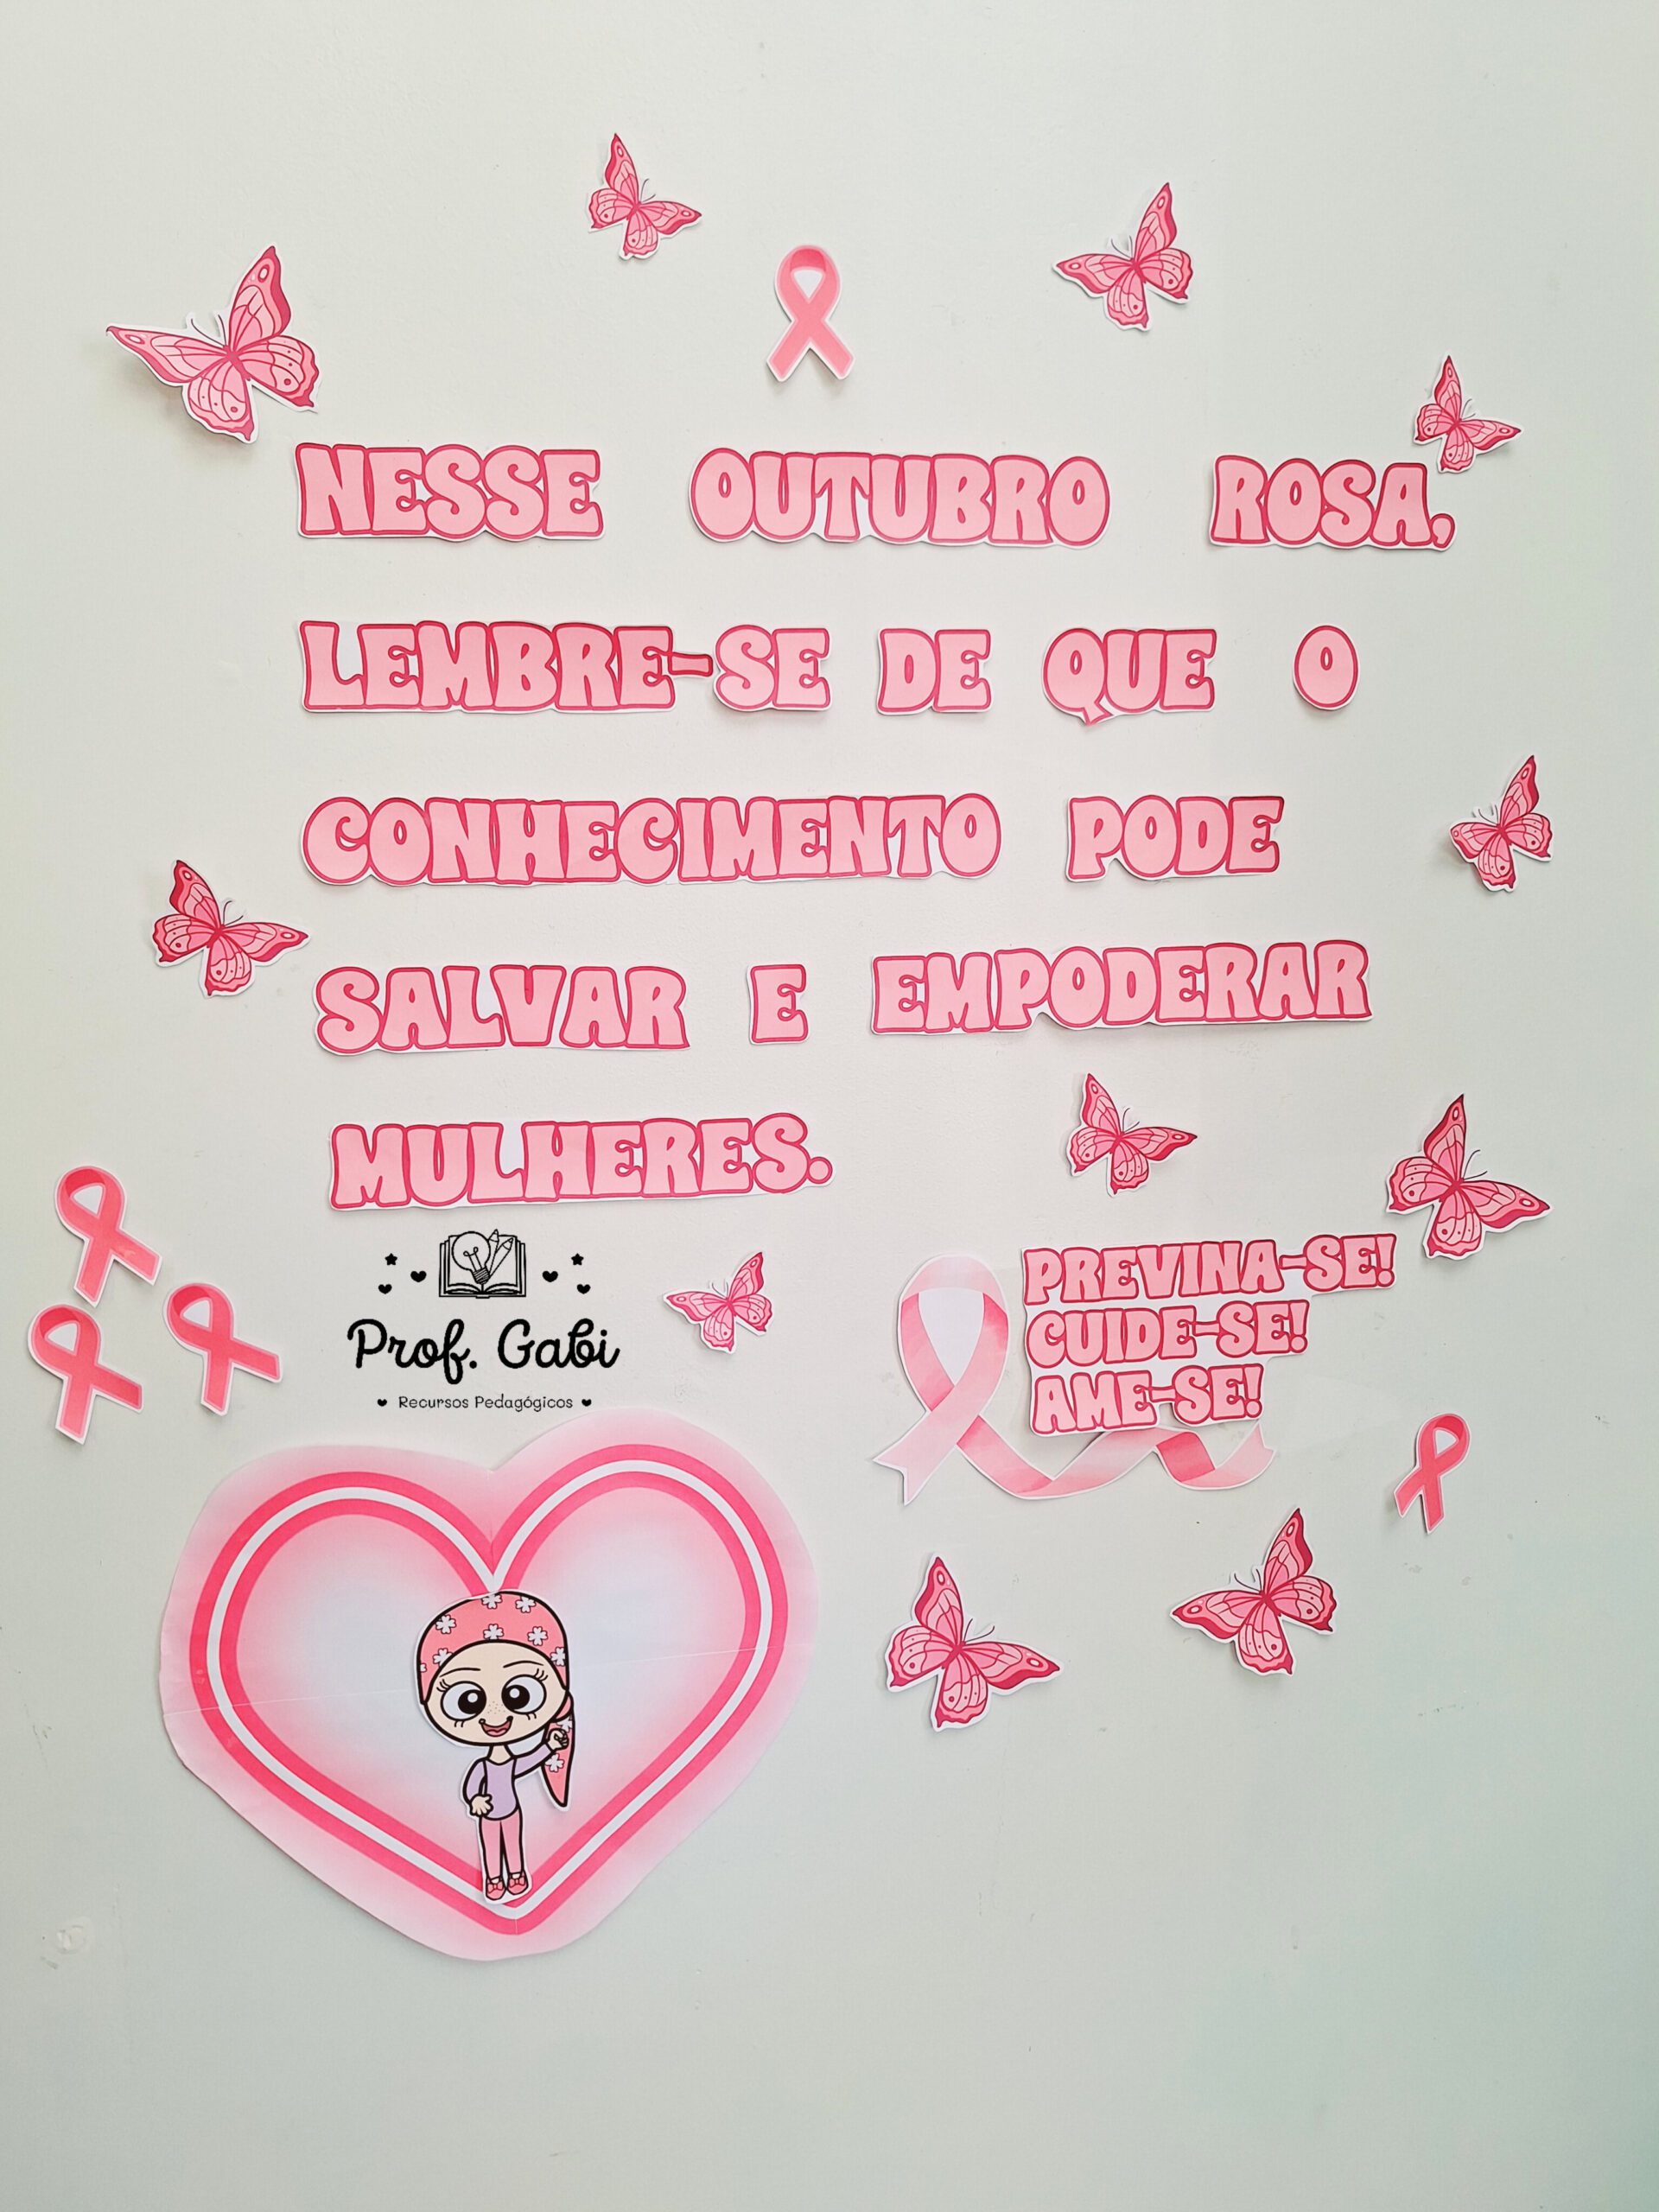 NESSE OUTUBRO ROSA,
LEMBRE-SE DE QUE O
CONHECIMENTO PODE
SALVAR E EMPODERAR
MULHERES.
Prof. Gabi
Recursos Pedagógicos
PREVINA-SE!
CUIDE-SE!
AME-SE!